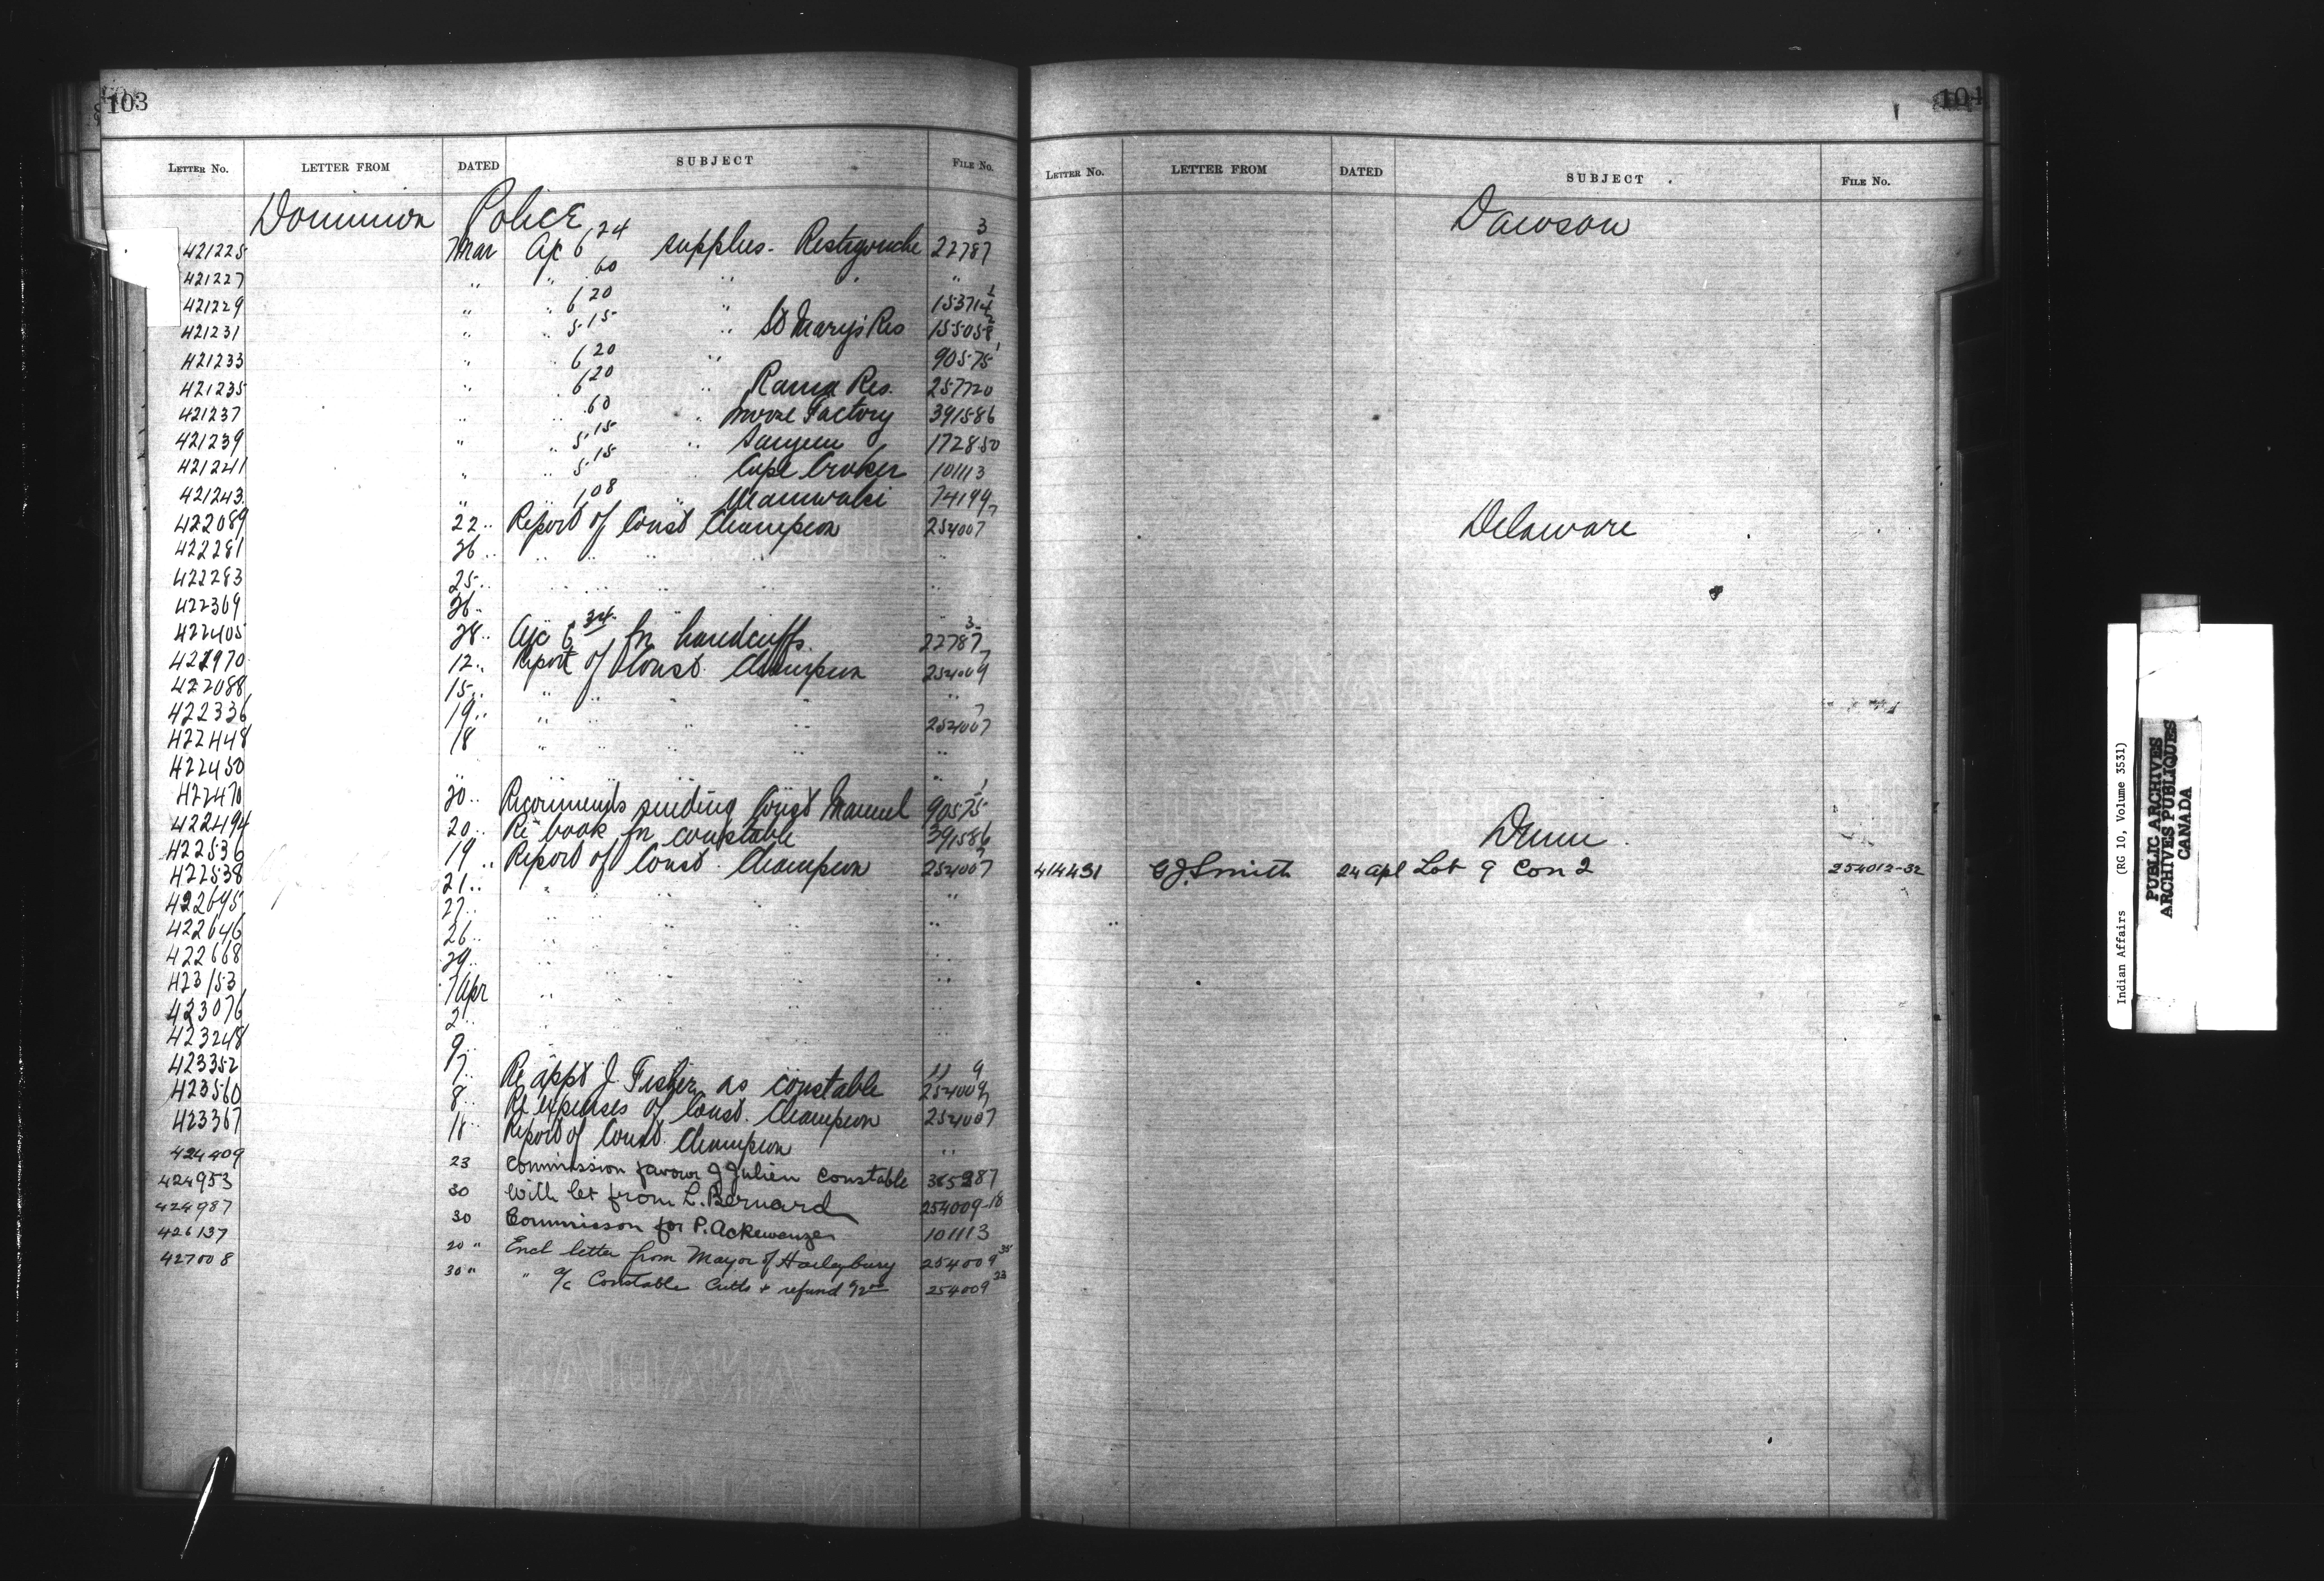 103
LETTER NO. LETTER FROM DATED SUBJECT FILE No.
Dominion Police
421225 7 Mar A/c 6 24 supplies - Restigouche 22787 3
421227 " " .60 " " "
421229 " " 6 20 " 153714
421231 " " 5.15 " St Mary's Res 155058 2
421233 " " 6 20 " 90575 1
421235 " " 6 20 " Rama Res. 257720
421237 " " .60 " Moose Factory 391586
421239 " " 5.15 " Saugeen 172850
421241 " " 5.15 " Cape Croker 101113
421243 " " 1.08 " Maniwaki 74194
422089 22 " Report of Const Champion 254007 7
422281 26 " " " " " "
422283 25 " " " " " "
422369 26 " " " " "
422405 28 " A/c 6 34 for handcuffs 22787 3
421970 12 " Report of Const. Champion 254009 7
422088 15 " " " " " "
422336 19 " " " " " 254007 7
422448 18 " " " " "
422450 " " " " " "
422470 20 " Recommends sending Const Manuel 90575 1
422494 20 " Re book for constable 391586
422536 19 " Report of Const. Champion 254007 7
422538 21 " " " " "
422645 27 " " " " " "
422646 26 " " " " " "
422668 29 " " " " " "
423153 7 Apr " " " " "
423076 2 " " " " " "
423248 9 " " " " " "
423352 7 " Re appt J. Fisher as constable 254009 9
423560 8 " Re expenses of Const. Champion 254007 7
423367 11 " Report of Const. Champion "
424409 23 Commission favour J Julien Constable 365287
424953 30 With let from L. Bernard 254009-18
424987 30 Commisson for P. Ackewanze 101113
426137 20 " Encl letter from Mayor of Haileybury 254009 35
427008 30 " " a/c Constable Cutts + refund 92 00 254009 23
104
LETTER NO. LETTER FROM DATED SUBJECT FILE No.
Dawson
Delaware
Dunn
414431 G J. Smith 24 Apl Lot 9 Con 2 254012-32
Indian Affairs (RG 10, Volume 3531)
PUBLIC ARCHIVES
ARCHIVES PUBLIQUES
CANADA